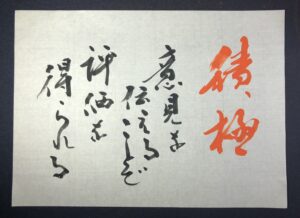 積極
意見を
伝えることで
評価を
得られる